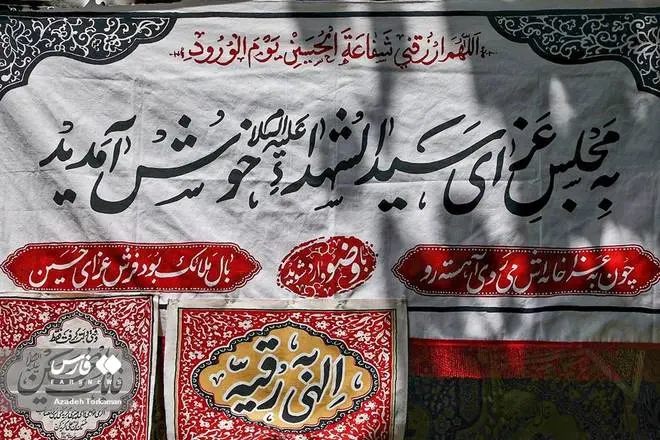 اللهم ارزقني شفاعة الحسين يوم الورود
به مجلس عزای سیدالشهداء علیه السلام خوش آمدید
چون به عزاخانه‌اش می‌روی آهسته رو
با وضو وارد شوید
بال ملائک بود فرش عزای حسین
الهی به رقیه
فارس
FARSNEWS
Azadeh Torkaman